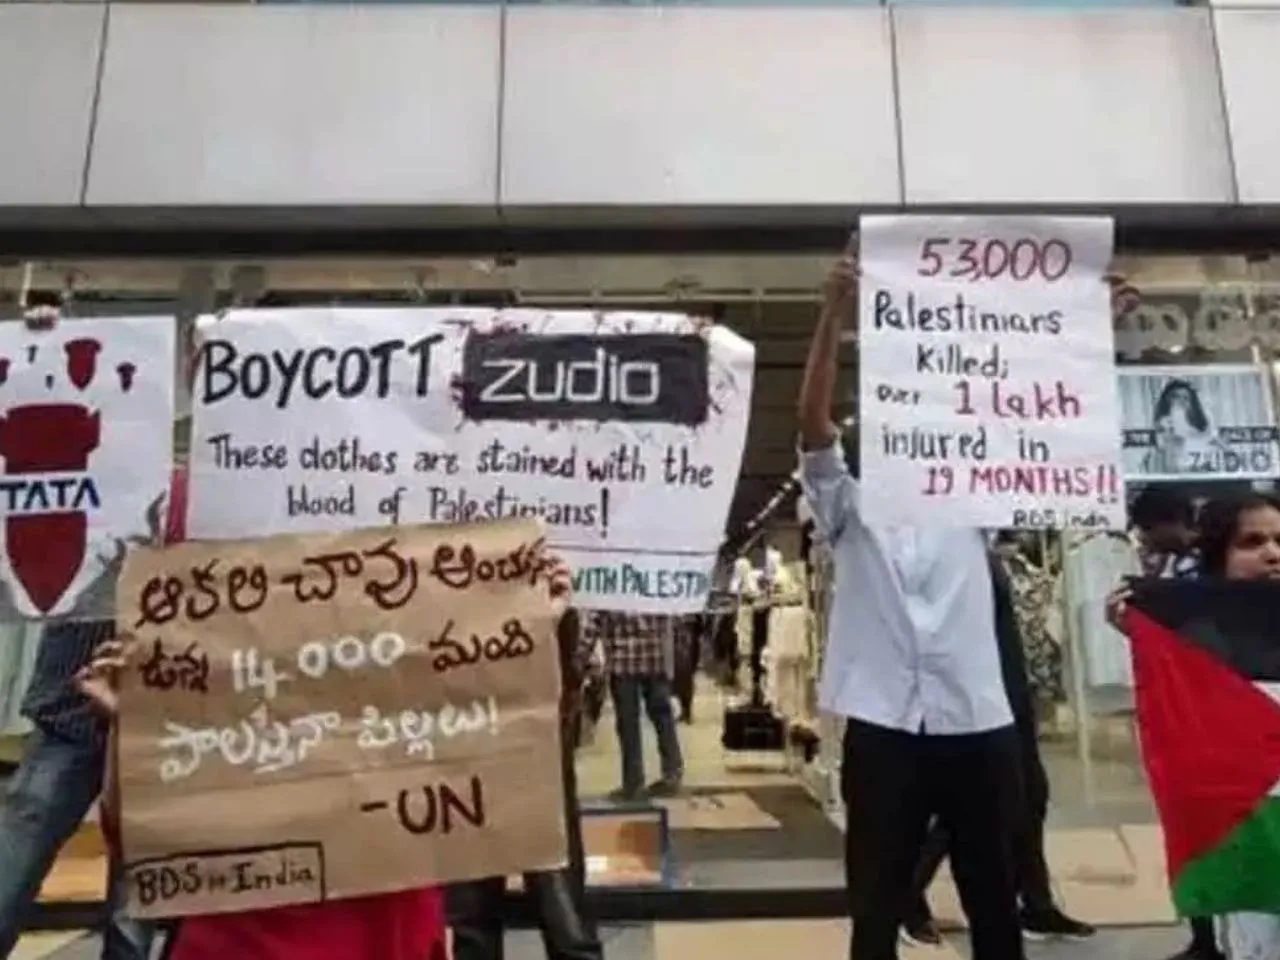 TATA
BOYCOTT zudio
These clothes are stained with the
blood of Palestinians!
WITH PALESTI
ఆకలి చావు అంచున
ఉన్న 14,000 మంది
పాలస్తీనా పిల్లలు!
-UN
BDS India
53,000
Palestinians
Killed;
over 1 lakh
injured in
19 MONTHS!!
BDS India
ZUDIO